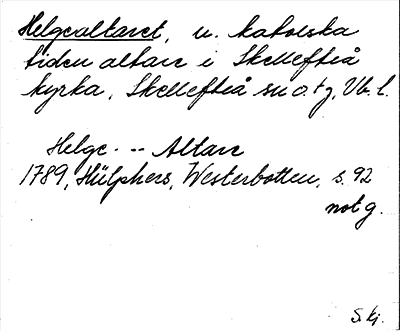 Helgealtaret, u. katolska
tiden altare i Skellefteå
kyrka, Skellefteå sn o. tg, Vb. l.
Helge. -- Altare
1789, Hülphers, Westerbotten, s. 92
not g.
S. kj.